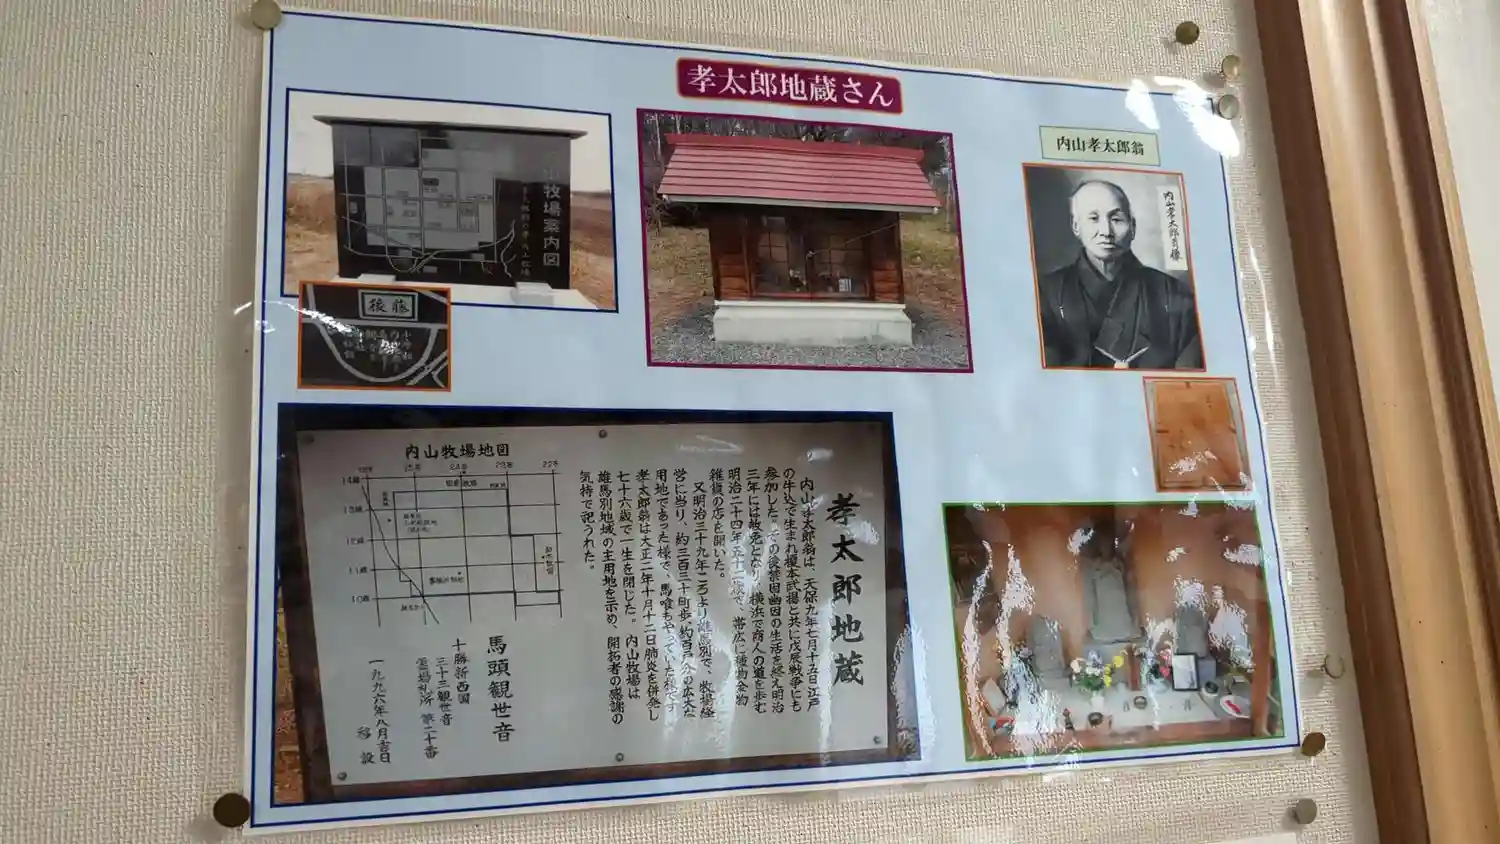 孝太郎地蔵さん
牧場案内図
後藤
内山孝太郎翁
内山孝太郎肖像
内山牧場地図
25号
24号
23号
22号
14線
13線
12線
11線
10線
孝太郎地蔵
内山孝太郎翁は、天保九年七月十五日江戸
の牛込で生まれ榎本武揚と共に戊辰戦争にも
参加した。その後禁固幽囚の生活を終え明治
三年には赦免となり、横浜で商人の道を歩む
明治二十四年五十二歳で、帯広に種物金物
雑貨の店を開いた。
又明治三十九年ころより雄馬別で、牧場経
営に当り、約三百三十町歩、約百戸分の広大な
用地であった様で、馬喰もやっていた様です
孝太郎翁は大正二年十月十二日肺炎を併発し
七十六歳で一生を閉じた。内山牧場は
雄馬別地域の主用地を示め、開拓者の感謝の
気持で記られた。
馬頭観世音
十勝新西国
三十三観世音
霊場札所 第二十番
一九九六年八月吉日
移設